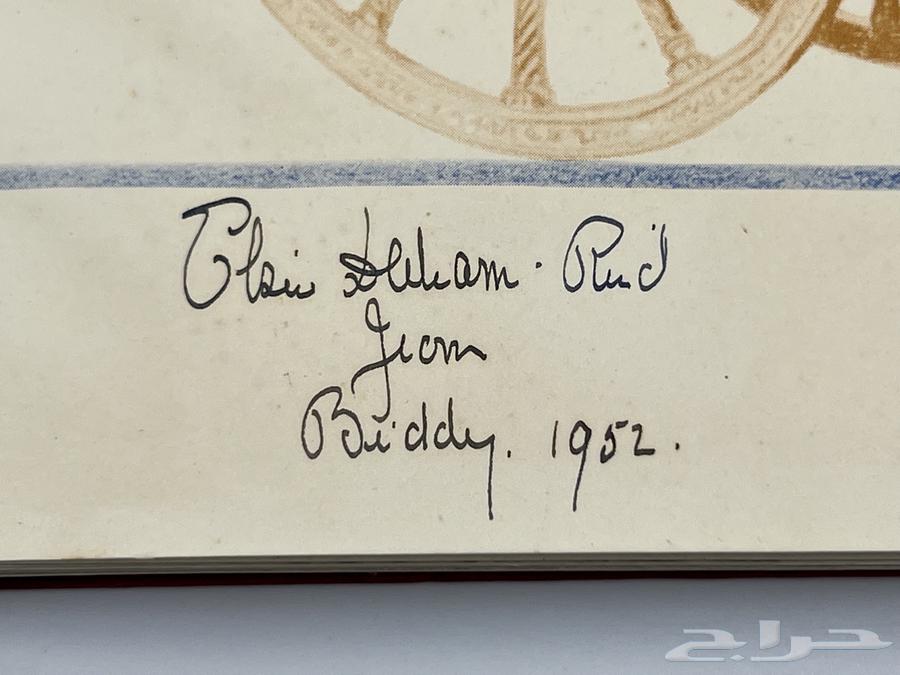 Elsie Statham-Reid
from
Biddy. 1952.
حراج